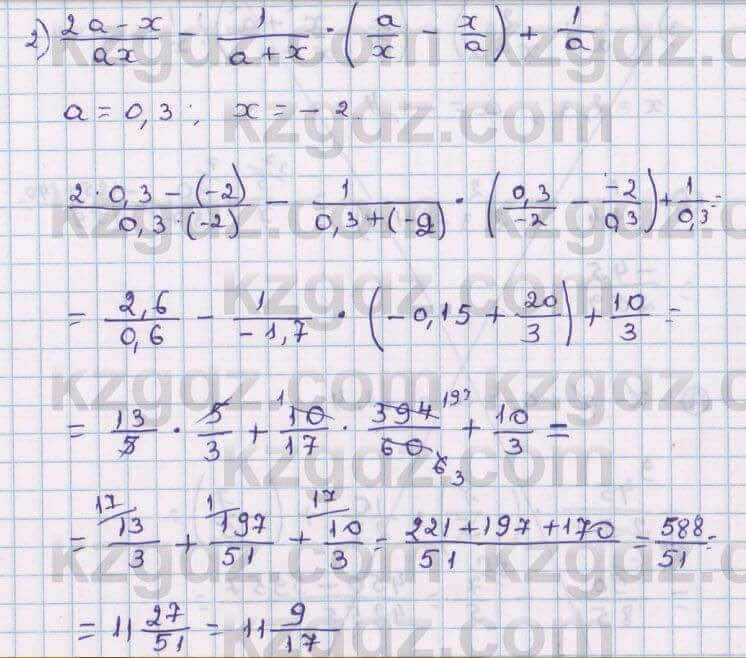 2) (2a - x)/(ax) - 1/(a + x) · (a/x - x/a) + 1/a
a = 0,3; x = -2.
(2 · 0,3 - (-2))/(0,3 · (-2)) - 1/(0,3 + (-2)) · (0,3/(-2) - (-2)/0,3) + 1/0,3 =
= 2,6/0,6 - 1/(-1,7) · (-0,15 + 20/3) + 10/3 =
= 13/5 · 5/3 + 1 10/17 · 394 197/60 6 3 + 10/3 =
= 17/ 13/3 + 1/ 197/51 + 17/ 10/3 = (221 + 197 + 170)/51 = 588/51 =
= 11 27/51 = 11 9/17
kzgdz.com